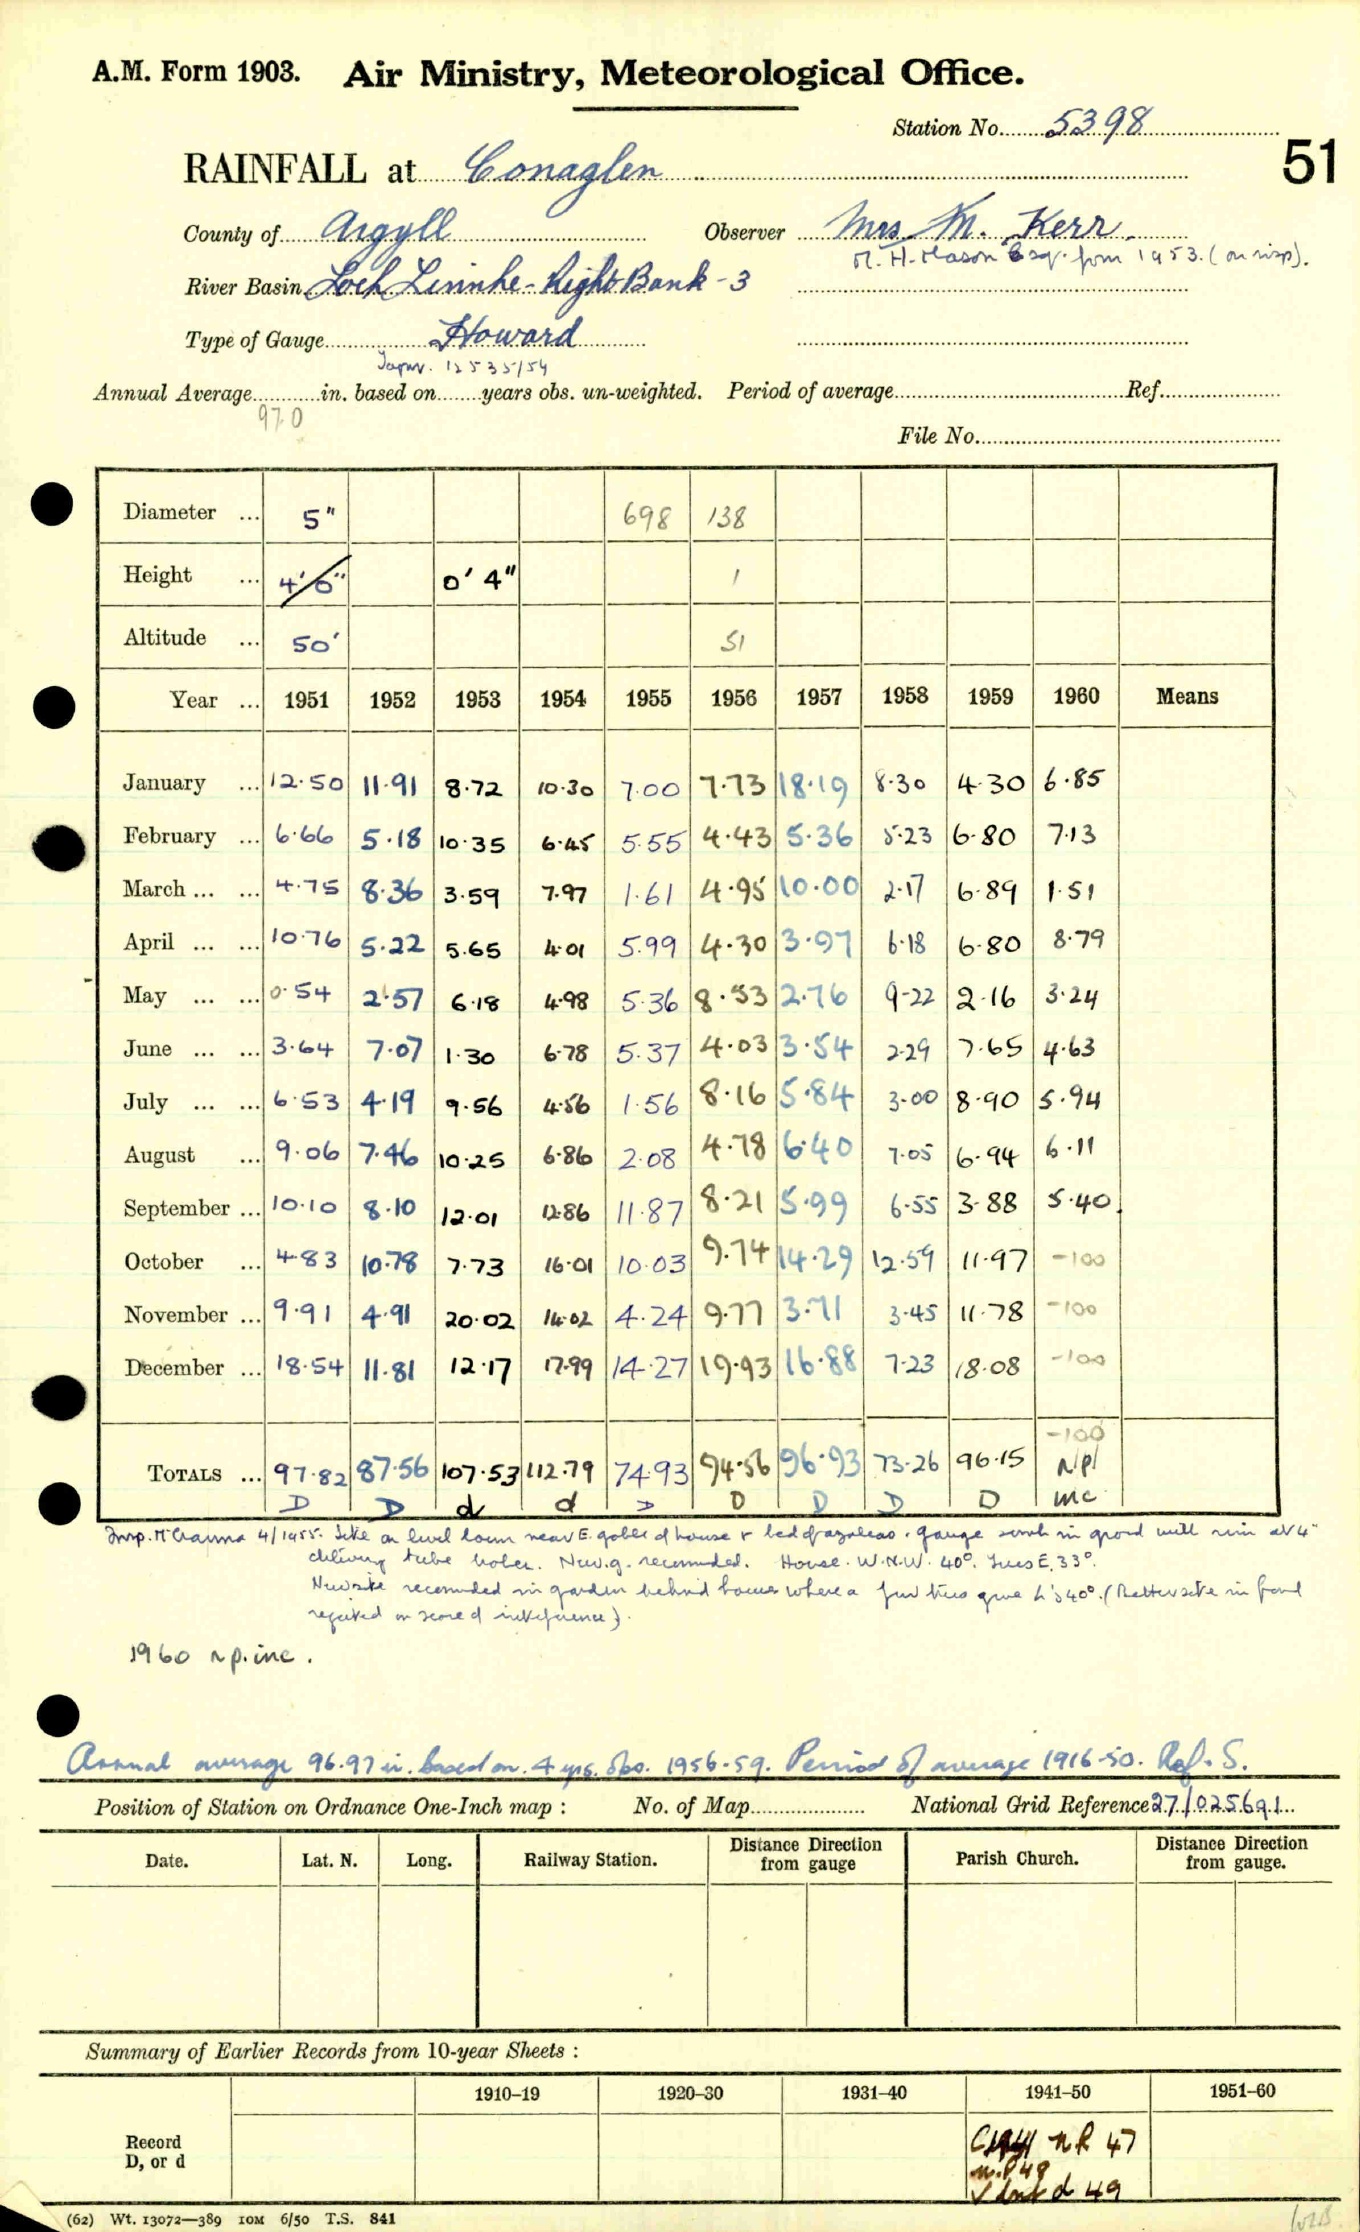 A.M. Form 1903. Air Ministry, Meteorological Office.
Station No. 5398
51
RAINFALL at Conaglen
County of Argyll Observer Mrs M. Kerr.
M. H. Mason Esq. from 1953. (on insp).
River Basin Loch Linnhe - Right Bank - 3
Type of Gauge Howard
12535/54
Annual Average in. based on years obs. un-weighted. Period of average Ref.
97.0
File No.
Diameter ... 5" 698 138
Height ... 4' 0" 0' 4" 1
Altitude ... 50' 51
Year ... 1951 1952 1953 1954 1955 1956 1957 1958 1959 1960 Means
January ... 12.50 11.91 8.72 10.30 7.00 7.73 18.19 8.30 4.30 6.85
February ... 6.66 5.18 10.35 6.45 5.55 4.43 5.36 5.23 6.80 7.13
March ... ... 4.75 8.36 3.59 7.97 1.61 4.95 10.00 2.17 6.89 1.51
April ... ... 10.76 5.22 5.65 4.01 5.99 4.30 3.97 6.18 6.80 8.79
May ... ... 0.54 2.57 6.18 4.98 5.36 8.53 2.76 9.22 2.16 3.24
June ... ... 3.64 7.07 1.30 6.78 5.37 4.03 3.54 2.29 7.65 4.63
July ... ... 6.53 4.19 9.56 4.56 1.56 8.16 5.84 3.00 8.90 5.94
August ... 9.06 7.46 10.25 6.86 2.08 4.78 6.40 7.05 6.94 6.11
September ... 10.10 8.10 12.01 12.86 11.87 8.21 5.99 6.55 3.88 5.40
October ... 4.83 10.78 7.73 16.01 10.03 9.74 14.29 12.59 11.97 -100
November ... 9.91 4.91 20.02 14.02 4.24 9.77 3.71 3.45 11.78 -100
December ... 18.54 11.81 12.17 17.99 14.27 19.93 16.88 7.23 18.08 -100
-100
TOTALS ... 97.82 87.56 107.53 112.79 74.93 94.56 96.93 73.26 96.15 N/P/
D D d d D D D D D inc
Insp. 4/1955. Site on level lawn near E. gable of house & bed of azaleas. Gauge sunk in ground with rim at 4"
tube broken. New g. recommended. House W.N.W. 40°. Trees E. 33°.
New site recommended in garden behind house where a few trees give 40°. (Better site in front
rejected on score of interference).
1960 n.p. inc.
Annual average 96.97 in. based on 4 yrs. obs. 1956-59. Period of average 1916-50. Ref. S.
Position of Station on Ordnance One-Inch map : No. of Map National Grid Reference 27/025691
Date. Lat. N. Long. Railway Station. Distance from gauge Direction Parish Church. Distance from gauge. Direction
Summary of Earlier Records from 10-year Sheets :
1910–19 1920–30 1931–40 1941–50 1951–60
Record D, or d
n R 47
n.P 48
d 49
(62) Wt. 13072—389 10M 6/50 T.S. 841